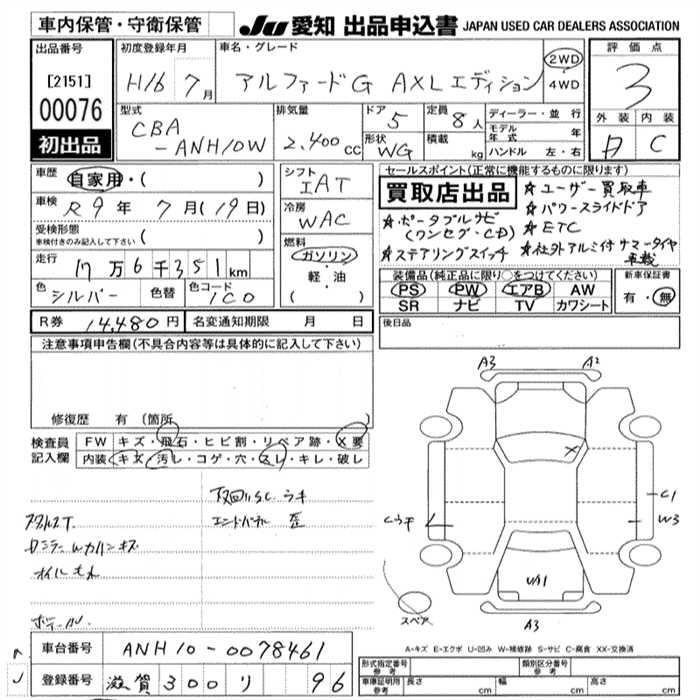 車内保管・守衛保管
JU 愛知 出品申込書 JAPAN USED CAR DEALERS ASSOCIATION
出品番号
[2151]
00076
初出品
初度登録年月
H16年 7月
車名・グレード
アルファードG AXLエディション
2WD
4WD
評価点
3
外装 内装
A C
型式
CBA
-ANH10W
排気量
2,400cc
ドア 5
形状 WG
定員 8人
積載 kg
ディーラー・並行
モデル年式 年
ハンドル 左・右
車歴 自家用・( )
車検 R9年 7月(19日)
受検形態
車検付きのみ記入して下さい ( )
走行
17万6千351km
色 シルバー 色替 色コード 1C0
シフト
IAT
冷房
WAC
燃料
ガソリン
軽・油
( )
セールスポイント(正常に機能するものに限ります)
買取店出品
☆ユーザー買取車
☆パワースライドドア
☆ポータブルナビ
(ワンセグ・CD)
☆ETC
☆ステアリングスイッチ
☆社外アルミ付サマータイヤ
車載
装備品(純正品に限り○をつけてください)
PS PW エアB AW
SR ナビ TV カワシート
新車保証書
有・無
R券 14,480円 名変通知期限 月 日
後日品
注意事項申告欄(不具合内容等は具体的に記入して下さい)
修復歴 有 (箇所
検査員
記入欄
FW キズ・飛石・ヒビ割・リペア跡・X要
内装 キズ・汚レ・コゲ・穴・スレ・キレ・破レ
エンドパネル 歪
オイルもれ
A3 A2
X
C1
W3
UA1
スペア
A3
A-キズ E-エクボ U-凹み W-補修跡 S-サビ C-腐食 XX-交換済
車台番号 ANH10-0078461
登録番号 滋賀 300 り 96
型式指定番号
参考
類別区分番号
参考
車庫証明用
参考
長さ cm 幅 cm 高さ cm